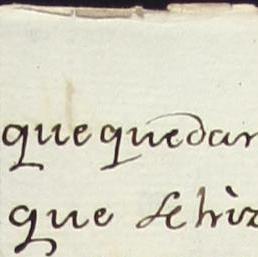 que quedar
que se hiz